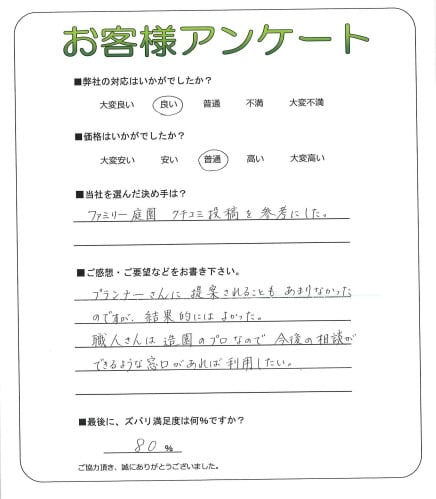 お客様アンケート
■弊社の対応はいかがでしたか？
大変良い　良い　普通　不満　大変不満
■価格はいかがでしたか？
大変安い　安い　普通　高い　大変高い
■当社を選んだ決め手は？
ファミリー庭園 クチコミ投稿を参考にした。
■ご感想・ご要望などをお書き下さい。
プランナーさんに提案されることもあまりなかった
のですが、結果的にはよかった。
職人さんは造園のプロなので今後の相談が
できるような窓口があれば利用したい。
■最後に、ズバリ満足度は何％ですか？
80 %
ご協力頂き、誠にありがとうございました。